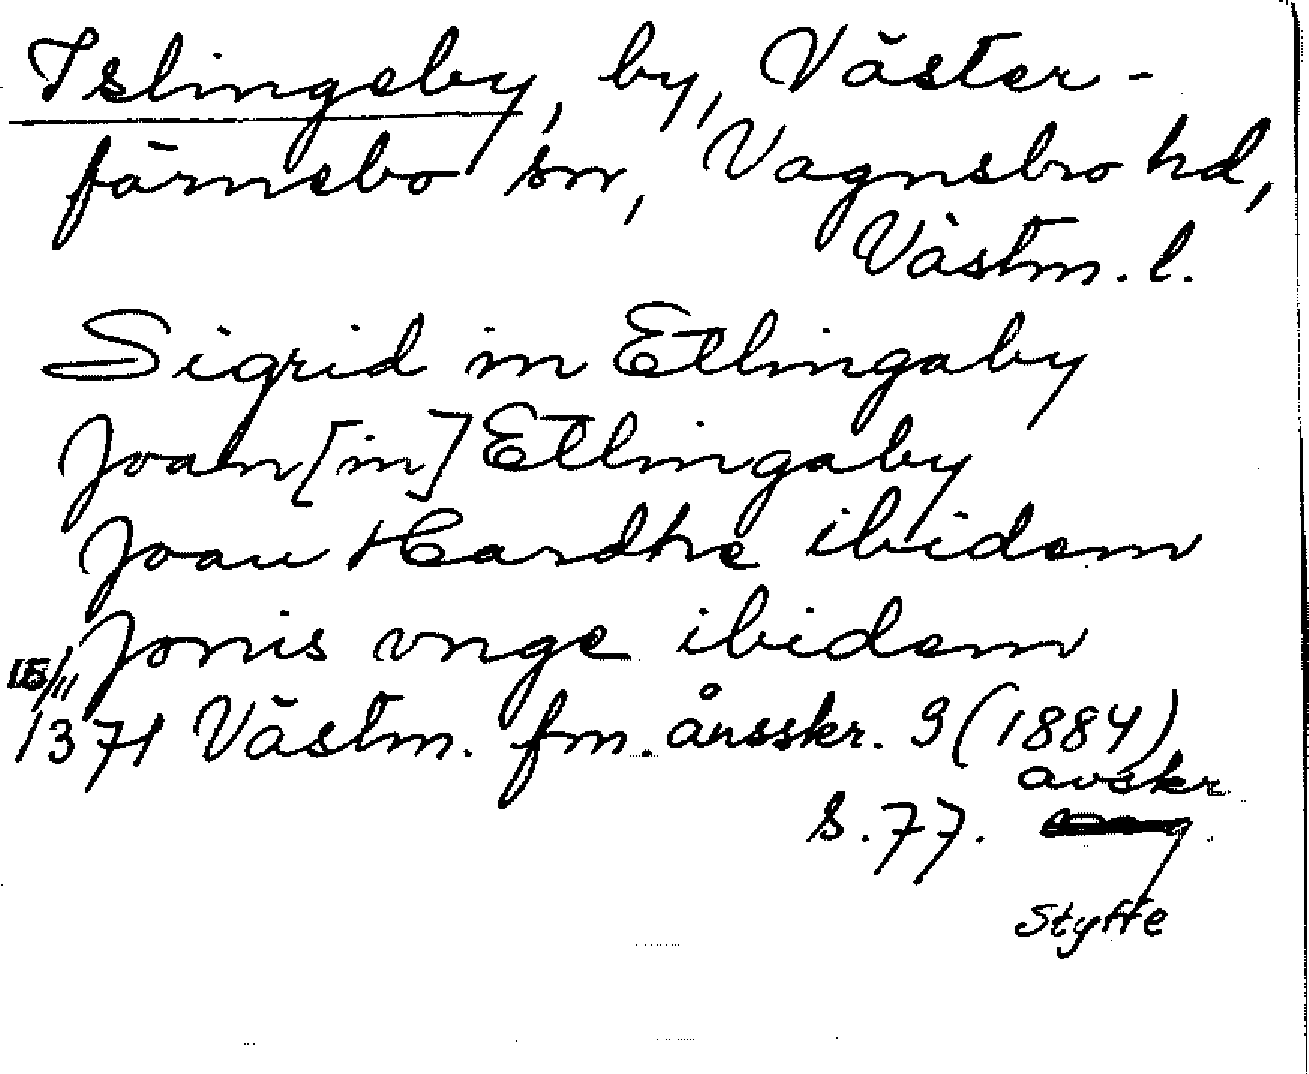 Islingeby, by, Väster-
färnebo sn, Vagnsbro hd,
Västm. l.
Sigrid in Etlingaby
Joan [in] Etlingaby
Joan Hardhe ibidem
Jonis vnge ibidem
15/11
1371 Västm. fm. årsskr. 3 (1884)
avskr.
s. 77.
Styffe